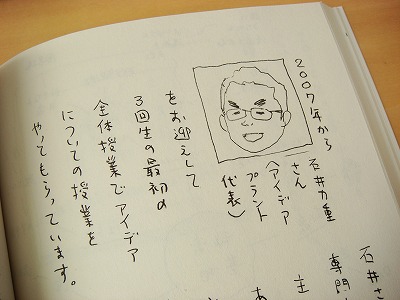 2007年から
石井力重
さん
(アイデア
プラント
代表)
をお迎えして
3回生の最初の
全体授業でアイデア
についての授業を
やってもらっています。
石井さ
専門
主
あ